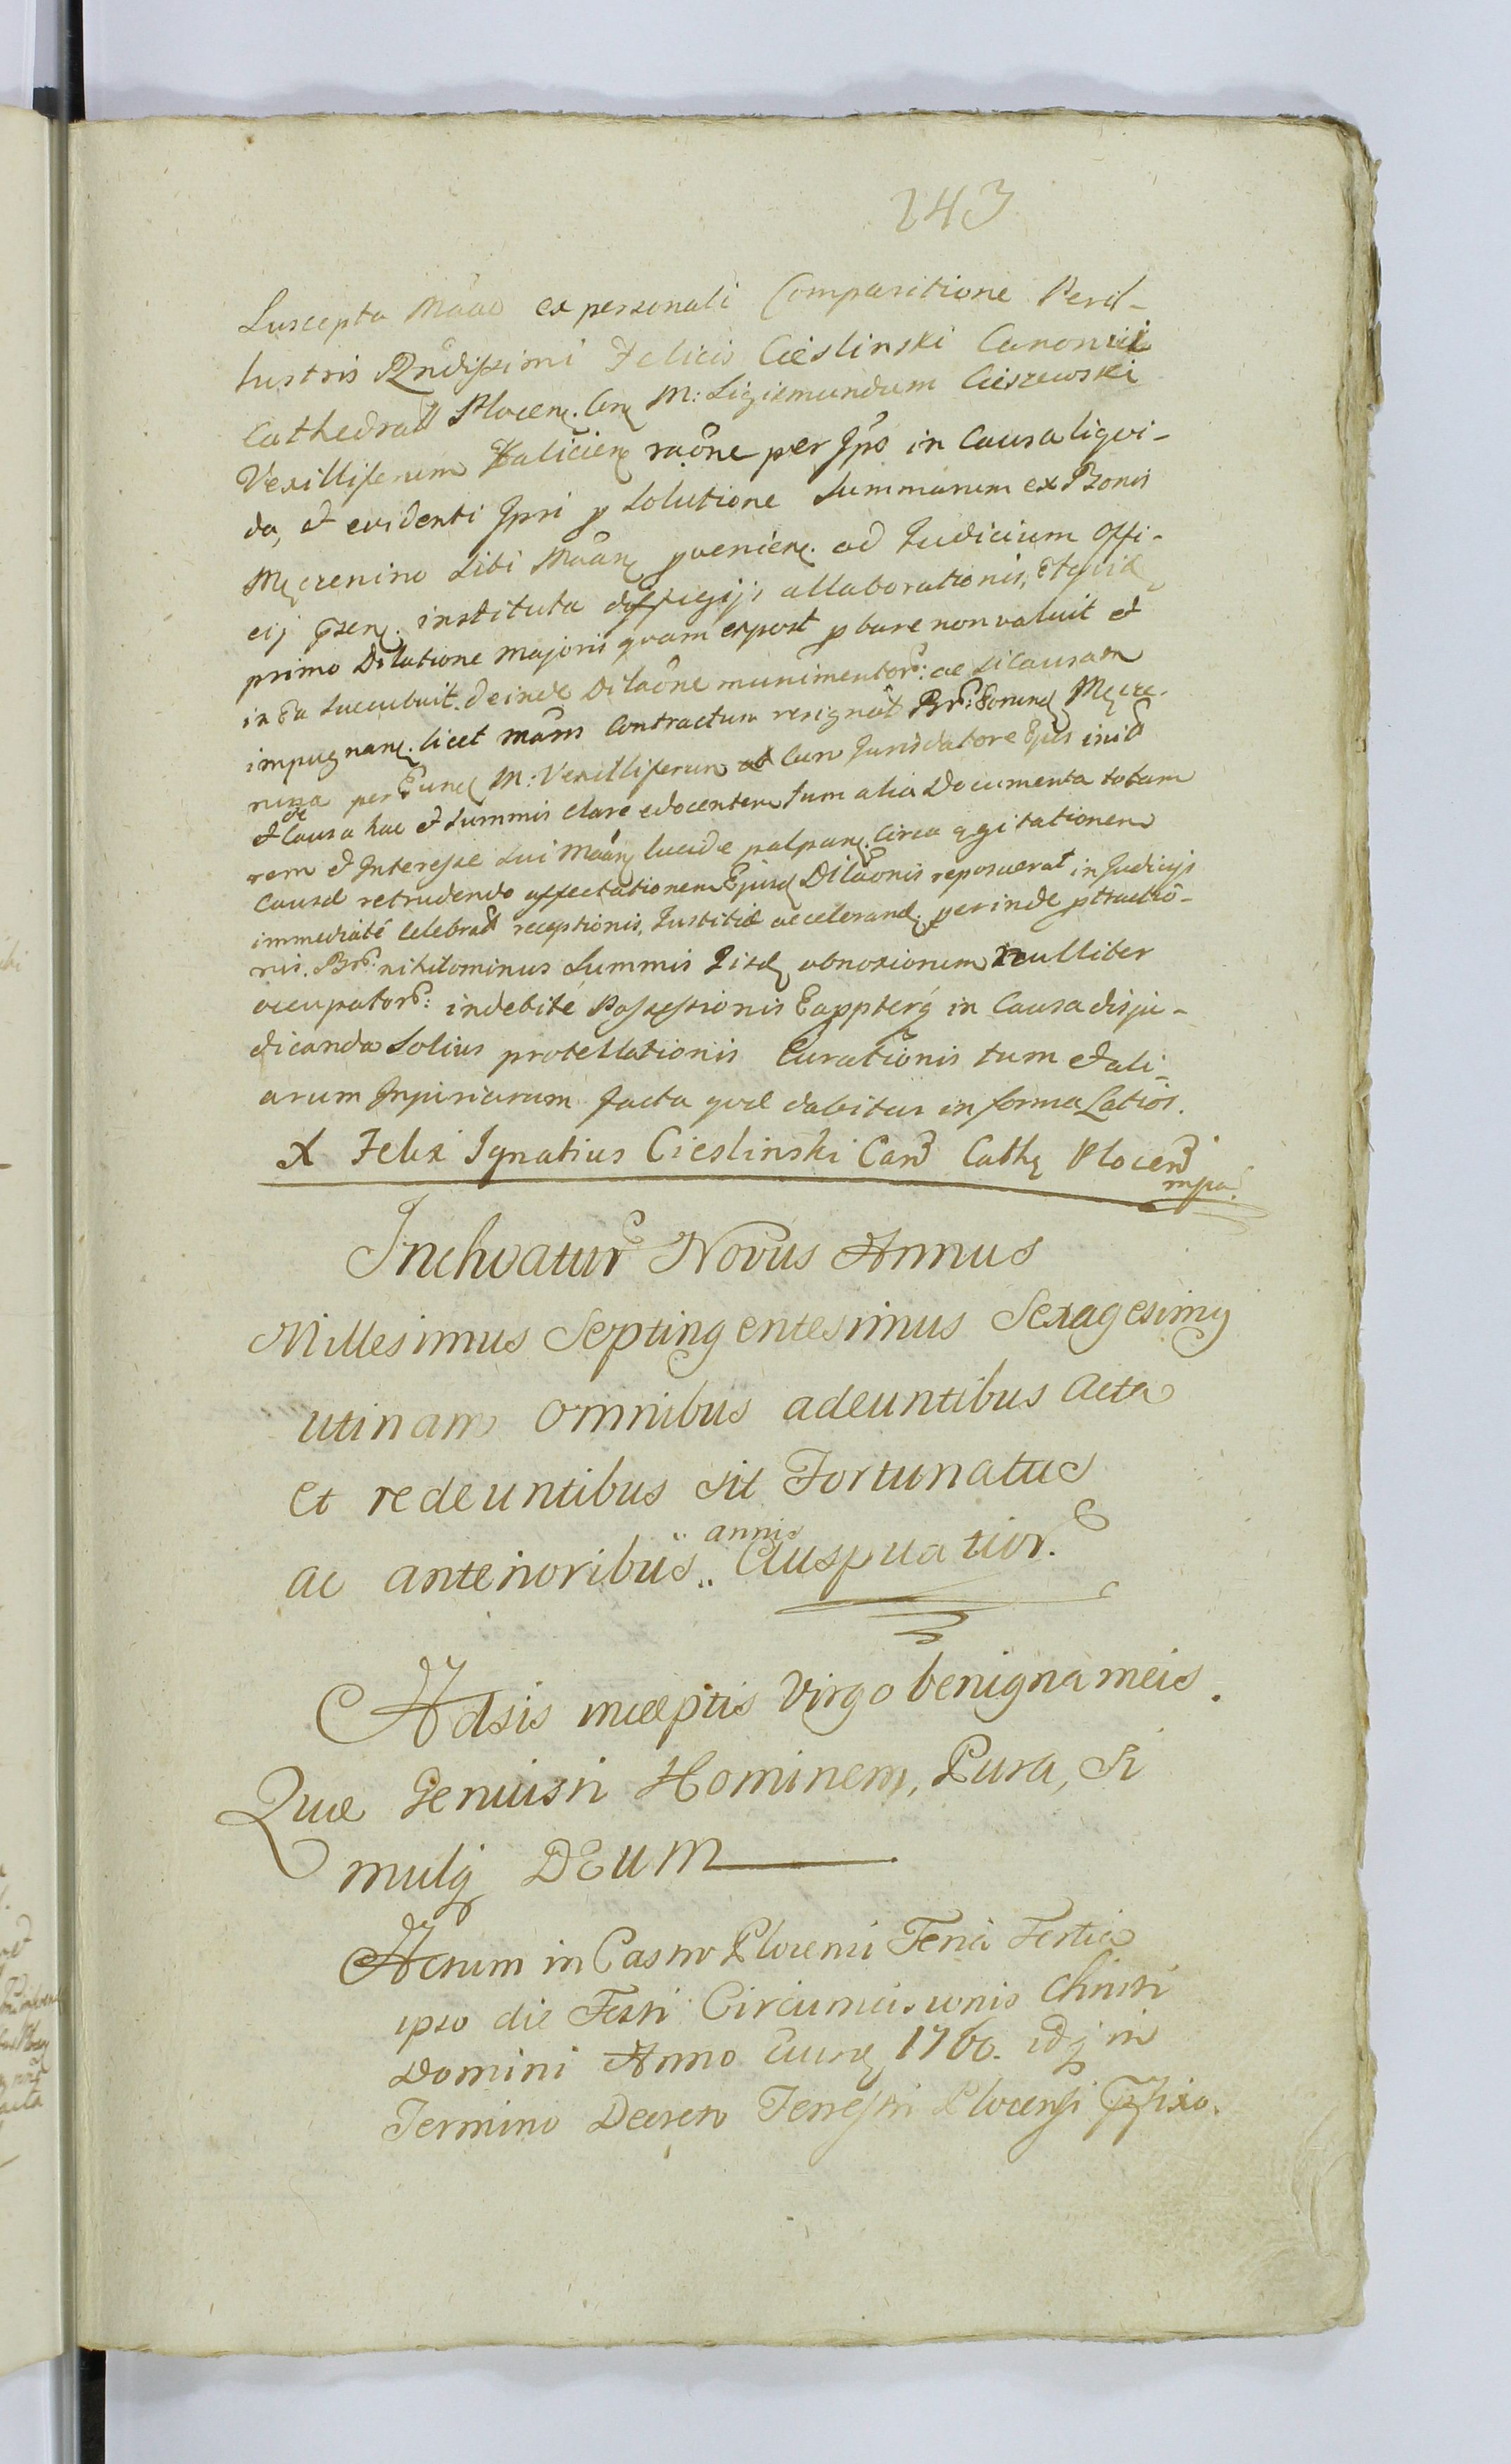 243
Suscepta Mãao ex personali Comparitione Peril-
lustris Rndissimi Felicis Cieslinski Canonici
Cathedral Plocen. Con M: Sigismundum Cieszewski
Vexilliferum Halicien raône per Ipso in Causa liqvi-
da, et evidenti Ipsi p Solutione Summarum ex Bonis
Męczenino Sibi Mãan pvenien. ad Iudicium Offi-
cij psen. instituta allaborationis, et qvid
primo Dilatione majoris qvam expost pbare non valuit et
in Ea succubuit. deinde Dilaône munimentor: ac si Causam
impugnan. licet Contractum resignat Br: Eorund Męcze-
nina per Eund M: Vexilliferum Cum Eius inid
et de Causa hac et Summis clare edocentem tum alia Documenta totam
rem et Interesse Sui Mãan lucide palpan. Circa agitationem
Causæ retrudendo affectationem Ejusd Dilaônis reposuerat in Iudicijs
immediaté Celebrad receptionis, Iustitiæ accelerand. perinde pttractio-
nis. Br: nihilominus Summis Iisd obnoxiorum nulliter
occupator: indebité Possessionis in Causa disju-
dicanda Solius protellationis Curationis tum et ali-
arum Injuriarum facta qvæ dabitur in forma Latiori.
X Felix Ignatius Cieslinski Can Cath Plocen
mpa.
Inchoatur Novus Annus
Millesimus Septingentesimus Sexagesimg
utinam omnibus adeuntibus Acta
et redeuntibus sit Fortunatus
annis
ac anterioribus Auspicatior.
Adsis incæptis Virgo benigna meis.
Quæ Genuisti Hominem, Pura, Si
mulq DEUM
Actum in Castro Plocensi Feria Tertia
ipso die Festi Circumcisionis Christi
Domini Anno Eiusd 1760. idq in
Termino Decreto Terrestri Plocensi pfixo.